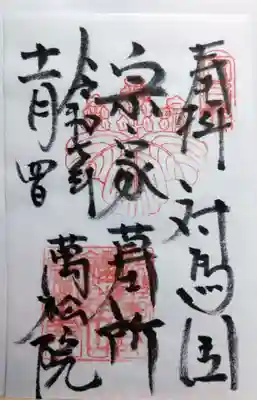 奉拝 対馬国
宗家墓所
萬松院
令和七年
十一月四日